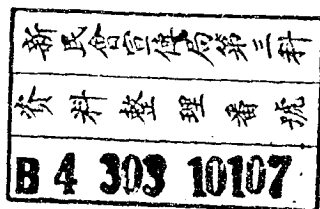 新民會宣傳局第三科
資料整理番號
B 4 303 10107